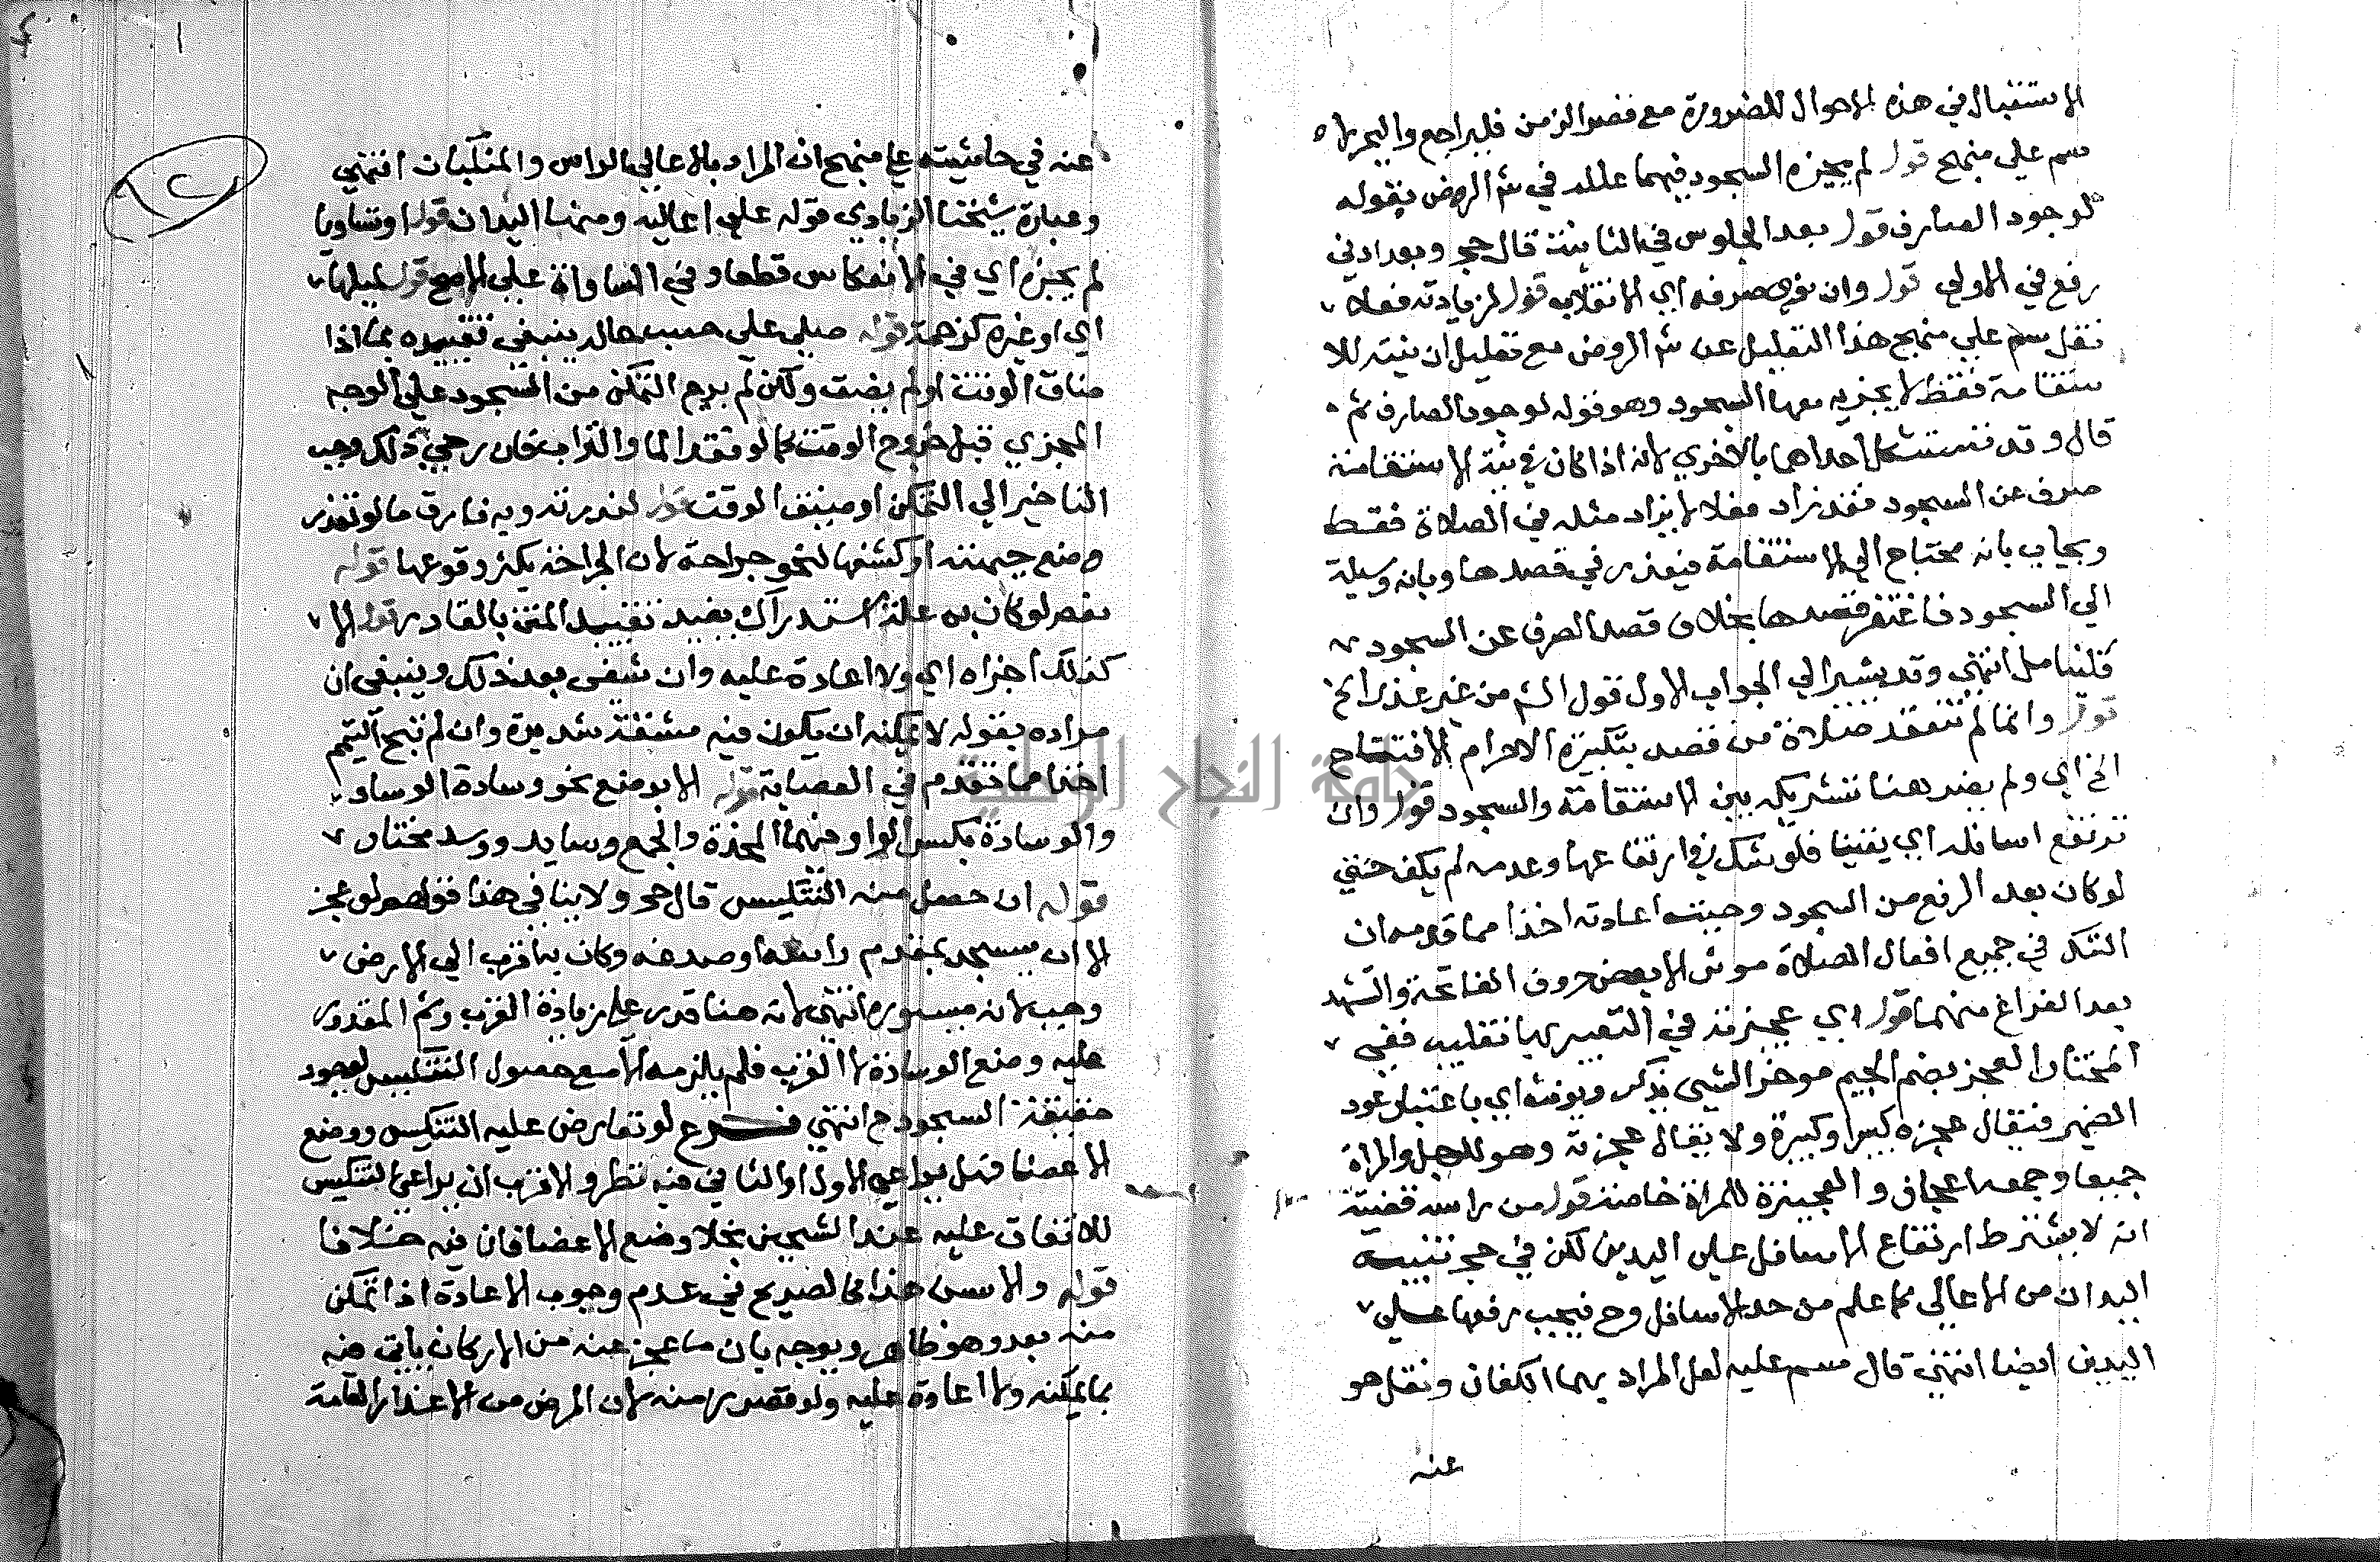 الاستقبال في هذه الاحوال للضرورة مع قصر الزمن فليراجع وليحرر اه
سم علي منهج قوله لم يجزه السجود فيهما علله في شرح الروض بقوله
لوجود الصارف قوله بعد الجلوس في الثانية قال حج وبعد ادني
رفع في الاولي قوله وان نوي صرفه اي الانقلاب قوله لزيادته فعلا
نقل سم علي منهج هذا التعليل عن شرح الروض مع تعليل ان نيته للا
ستقامة فقط لا يجزيه معها السجود وهو قوله لوجود الصارف ثم
قال وقد تستشكل احداهما بالاخري لانه اذا كان في نية الاستقامة
صرف عن السجود فقد زاد فعلا لا يزاد مثله في الصلاة فقط
ويجاب بانه محتاج الي الاستقامة فيعذر في قصدها وبانه وسيلة
الي السجود فاغتفر قصدها بخلاف قصد الصرف عن السجود
فليتامل انتهي وقد يشير الي الجواب الاول قول الشرح من غير عذر الخ
قوله وانما لم تنعقد صلاة من قصد بتكبيرة الاحرام الافتتاح
الخ اي ولم يضر هنا تشريكه بين الاستقامة والسجود قوله وان
ترتفع اسافله اي يقينا فلو شك في ارتفاعها وعدمه لم يكف حتي
لو كان بعد الرفع من السجود وجبت اعادته اخذا مما قدمه ان
الشك في جميع افعال الصلاة موثر الا بعض حروف الفاتحة والتشهد
بعد الفراغ منهما قوله اي عجيزته في التعبير بها تغليب ففي
المختار العجز بضم الجيم موخر الشي يذكر ويونث اي باعتبار عود
الضمير فيقال عجزه كبير وكبيرة ولا يقال عجزته وهو للرجل والمراة
جميعا وجمعه اعجاز والعجيزة للمراة خاصة قوله من راسه قضيته
انه لا يشترط ارتفاع الاسافل علي اليدين لكن في حج تنبيه
اليدان من الاعالي كما علم من حد الاسافل وح فيجب رفعها علي
اليدين ايضا انتهي قال سم عليه لعل المراد بهما الكفان ونقل هو
عنه
عنه في حاشيته علي منهج ان المراد بالاعالي الراس والمنكبان انتهي
وعبارة شيخنا الزيادي قوله علي اعاليه ومنها اليدان قوله او تساويا
لم يجزه اي في الانعكاس قطعا وفي المساواة علي الاصح قوله لميلها
اي او غيره كزحمة قوله صلي علي حسب حاله ينبغي تقييده بما اذا
ضاق الوقت او لم يضق ولكن لم يرج التمكن من السجود علي الوجه
المجزي قبل خروج الوقت كما لو فقد الما والتراب فان رجي ذلك وجب
التاخير الي التمكن او ضيق الوقت قوله لندرته وبه فارق ما لو تعذر
وضع جبهته او كشفها لنحو جراحة لان الجراحة يكثر وقوعها قوله
نعم لو كان به علة استدراك يفيد تقييد المتن بالقادر قوله الا
كذلك اجزاه اي ولا اعادة عليه وان شفي بعد ذلك وينبغي ان
مراده بقوله لا يمكنه ان يكون فيه مشقة شديدة وان لم تبح التيمم
اخذا مما تقدم في العصابة قوله الا بوضع نحو وسادة الوساد
والوسادة بكسر الواو فيهما المخدة والجمع وسايد ووسد مختار
قوله ان حصل منه التنكيس قال حج ولا ينافي هذا قولهم لو عجز
الا ان يسجد بمقدم راسه او صدغه وكان بها اقرب الي الارض
وجب لانه ميسوره انتهي لانه هنا قدر علي زيادة القرب وثم المقدور
عليه وضع الوسادة لا القرب فلم يلزمه الا مع حصول التنكيس لوجود
حقيقة السجود ح انتهي فرع لو تعارض عليه التنكيس ووضع
الاعضا فهل يراعي الاول او الثاني فيه نظر والاقرب ان يراعي التنكيس
للاتفاق عليه عند الشيخين بخلاف وضع الاعضا فان فيه خلافا
قوله والاسن هذا كالصريح في عدم وجوب الاعادة اذا تمكن
منه بعد وهو ظاهر ويوجه بان ما عجز عنه من الاركان ياتي منه
بما يمكنه ولا اعادة عليه ولو قصر زمنه لان المرض من الاعذار العامة